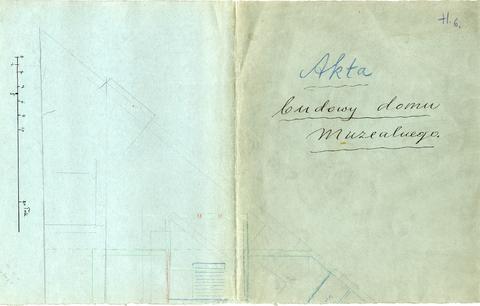 H. 6.
Akta
budowy domu
Muzealnego.